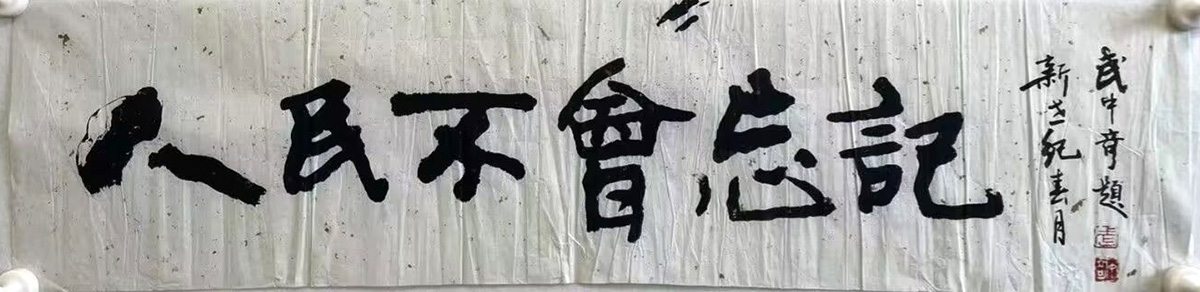 人民不會忘記
新世纪春月
武中奇題